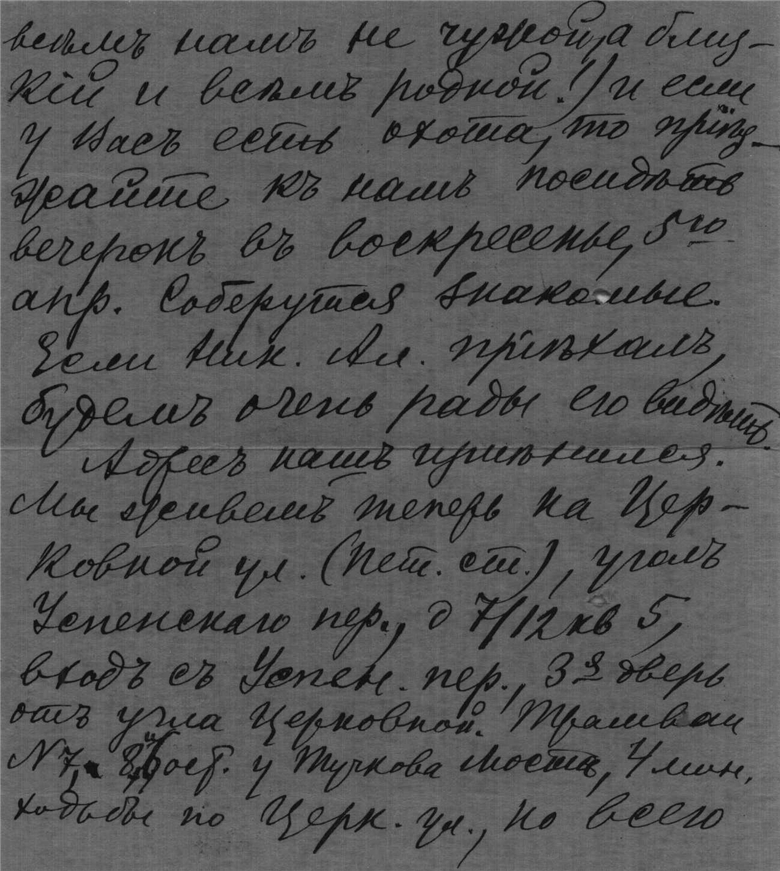 всѣмъ намъ не чужой, а близ-
кій и всѣмъ родной!) и если
у Васъ есть охота, то пріѣз-
жайте къ намъ посидѣть
вечерокъ въ воскресенье, 5го
апр. Соберутся знакомые.
Если Ник. Ал. пріѣхалъ,
будемъ очень рады его видѣть.
Адресъ нашъ
Мы живемъ теперь на Цер-
ковной ул. (Пет. ст.), уголъ
Успенскаго пер., д 7/12 кв 5,
входъ съ Успен. пер., 3я дверь
отъ угла Церковной. Трамваи
N 7, у Тучкова Моста, 4 мин.
ходьбы по Церк. ул., но всего